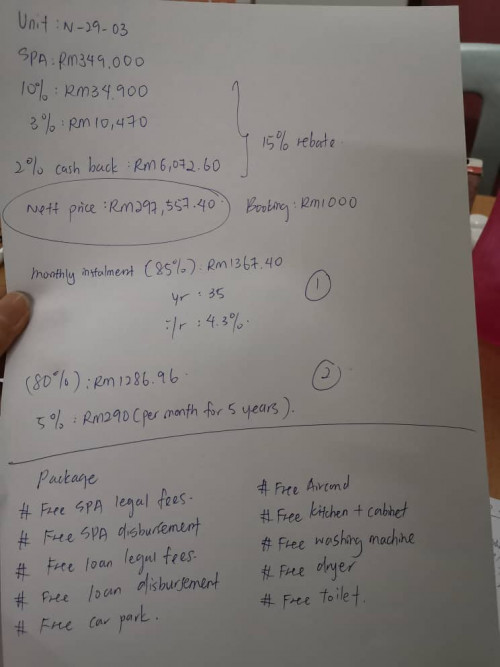 Unit : N-29-03
SPA : RM349,000
10% : RM34,900
3% : RM10,470
15% rebate
2% cash back : RM6,072.60
Nett price : RM297,557.40
Booking : RM1000
Monthly instalment (85%) : RM1367.40
yr : 35
i/r : 4.3%
1
(80%) : RM1286.96
2
5% : RM290 (per month for 5 years).
Package
# Free SPA legal fees.
# Free SPA disbursement
# Free loan legal fees.
# Free loan disbursement
# Free car park.
# Free Aircond
# Free kitchen + cabinet
# Free washing machine
# Free dryer
# Free toilet.